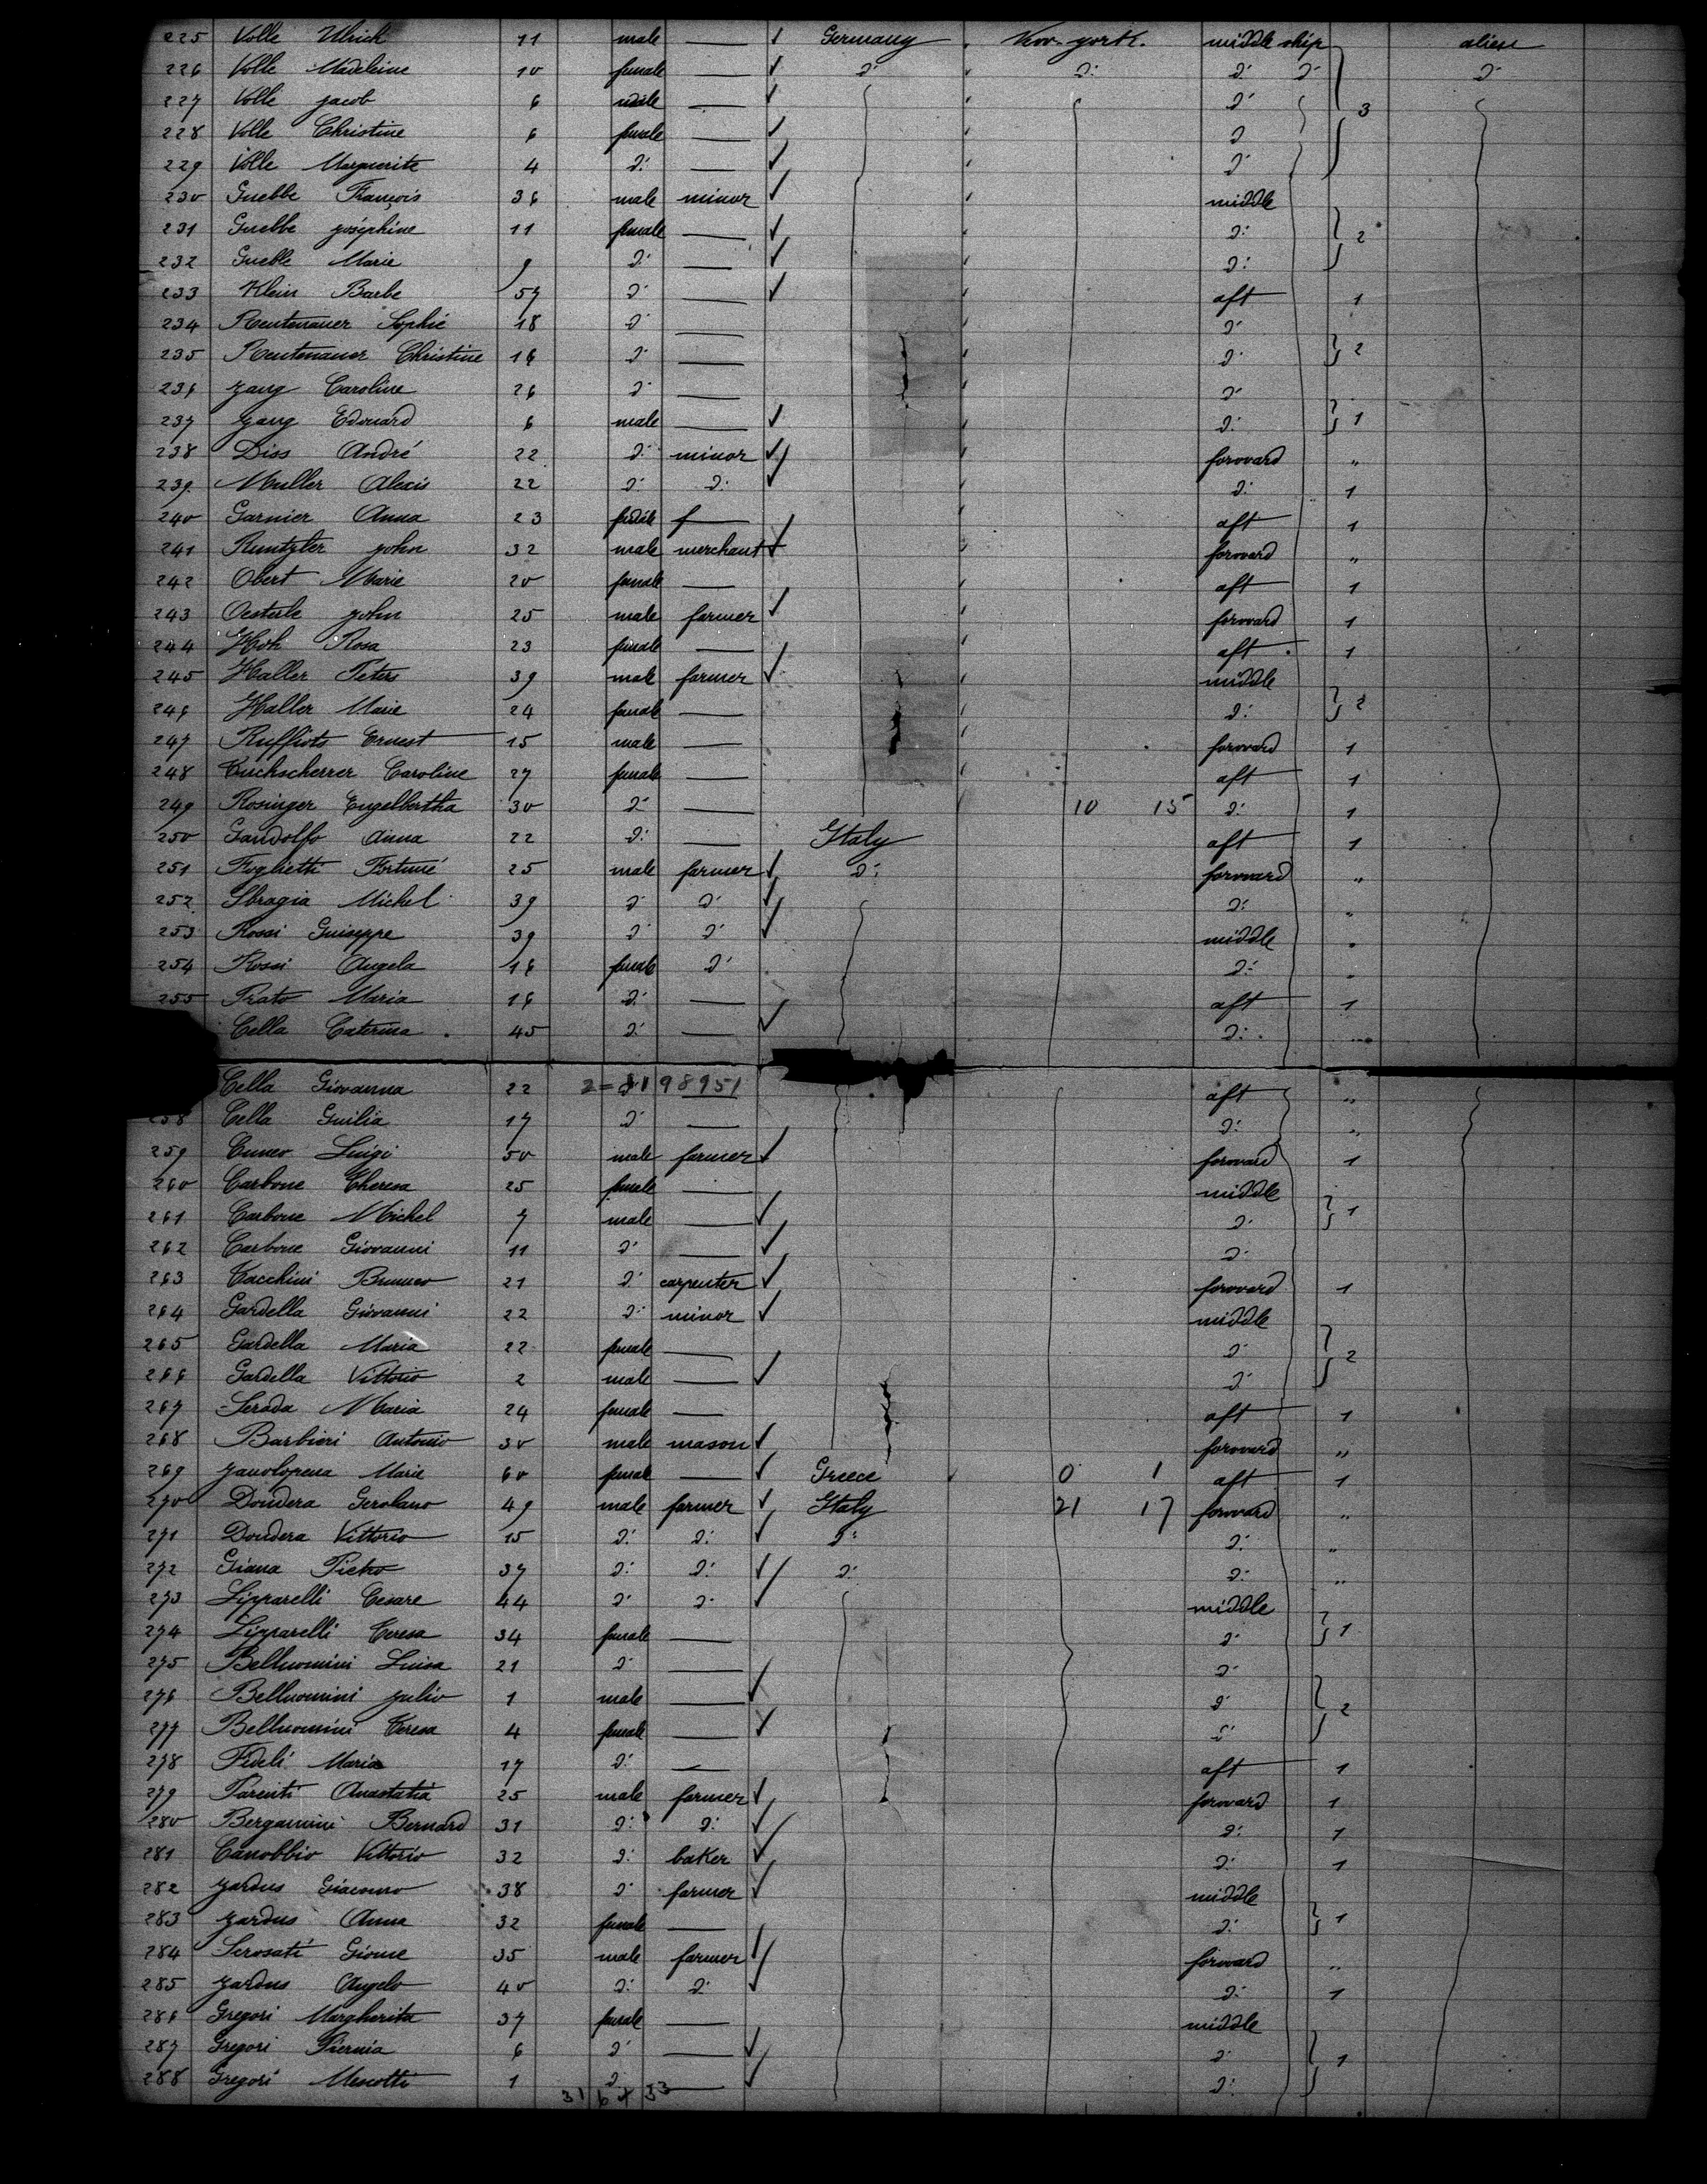 225 Volle Ulrich 11 male — Germany New-york. middle ship alien
226 Volle Madeleine 10 female — d: d: d: d: d:
227 Volle jacob 6 male — d: 3
228 Volle Christine 6 female — d
229 Volle Marguerite 4 d: — d:
230 Guebbe François 36 male minor middle
231 Guebbe joséphine 11 female — d: 2
232 Guebbe Marie 9 d: — d:
233 Klein Barbe 57 d: — aft 1
234 Reutenauer Sophie 18 d: — d:
235 Reutenauer Christine 16 d: — d: 2
236 Zang Caroline 26 d: — d:
237 Zang Edouard 6 male — d: 1
238 Diss André 22 d: minor forward "
239 Muller Alexis 22 d: d: d: 1
240 Garnier Anna 23 — aft 1
241 Runtzler john 32 male merchant forward "
242 Obert Marie 20 female — aft 1
243 Oesterle john 25 male farmer forward 1
244 Hoh Rosa 23 female — aft 1
245 Haller Peters 39 male farmer middle
246 Haller Marie 24 female — d: 2
247 Ruffiots Ernest 15 male — forward 1
248 Tuchscherrer Caroline 27 female — aft 1
249 Rosinger Engelbertha 30 d: — 10 15 d: 1
250 Gandolfo Anna 22 d: — Italy aft 1
251 Foglietti Fortuné 25 male farmer d: forward "
252 Sbragia Michel 39 d: d: d: "
253 Rossi Guiseppe 39 d: d: middle "
254 Rossi Angela 16 female d: d: "
255 Prato Maria 16 d: — aft 1
Cella Caterina 45 d: — d:
Cella Giovanna 22 — aft "
258 Cella Guilia 17 d: — d: "
259 Cuneo Luigi 50 male farmer forward 1
260 Carbone Theresa 25 female — middle
261 Carbone Michel 7 male — d: 1
262 Carbone Giovanni 11 d: — d:
263 Cacchini 21 d: carpenter forward 1
264 Gardella Giovanni 22 d: minor middle
265 Gardella Maria 22 female — d: 2
266 Gardella Vittorio 2 male — d:
267 Serada Maria 24 female — aft 1
268 Barbieri Antonio 30 male mason forward "
269 Marie 60 female — Greece 0 1 aft 1
270 Dondera Gerolano 49 male farmer Italy 21 17 forward "
271 Dondera Vittorio 15 d: d: d: d: "
272 Giana Pietro 37 d: d: d: d: "
273 Lipparelli Cesare 44 d: d: middle
274 Lipparelli Teresa 34 female — d: 1
275 Belluomini Luisa 21 d: — d:
276 Belluomini julio 1 male — d: 2
277 Belluomini Teresa 4 female — d:
278 Fideli Maria 17 d: — aft 1
279 Parenti Anastatia 25 male farmer forward 1
280 Bergamini Bernard 31 d: d: d: 1
281 Canobbio Vittorio 32 d: baker d: 1
282 Zardus Giacomo 38 d: farmer middle
283 Zardus Anna 32 female — d: 1
284 Serosati Giome 35 male farmer forward "
285 Zardus Angelo 40 d: d: d: 1
286 Gregori Margherita 37 female — middle
287 Gregori 6 d: — d: 1
288 Gregori Menotti 1 d: — d: